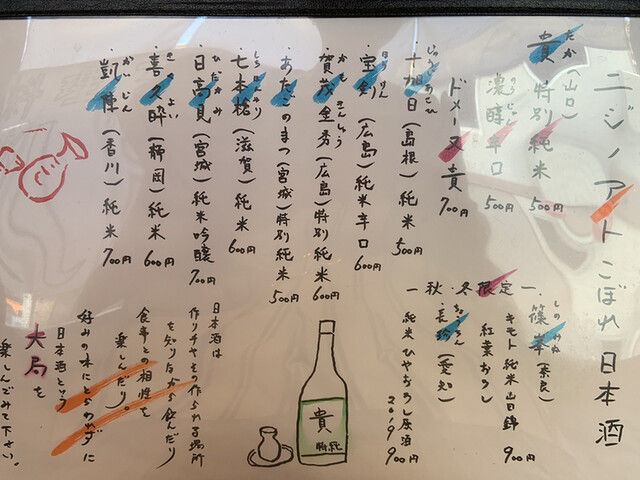 ニジノアト こぼれ日本酒
たか
貴 (山口) 特別純米 500円
濃醇辛口 500円
ドメーヌ貴 700円
じゅうじあさひ
十旭日 (島根) 純米 500円
ほうけん
宝剣 (広島) 純米辛口 600円
かもきんしゅう
賀茂金秀 (広島) 特別純米 600円
あたごのまつ (宮城) 特別純米 500円
しちほんやり
七本槍 (滋賀) 純米 600円
ひたかみ
日高見 (宮城) 純米吟醸 700円
きくよい
喜久酔 (静岡) 純米 600円
がいじん
凱陣 (香川) 純米 700円
ー秋・冬限定ー
しのみね
篠峯 (奈良)
キモト純米 山田錦
紅葉おろし 900円
ちょうちん
長珍 (愛知)
純米ひやおろし原酒
2019 900円
貴
特純
日本酒は
作り手やその作られる場所
を知りながら飲んだり
食事との相性を
楽しんだり。
好みの味にとらわれずに
日本酒という
大局を
楽しんでみて下さい。